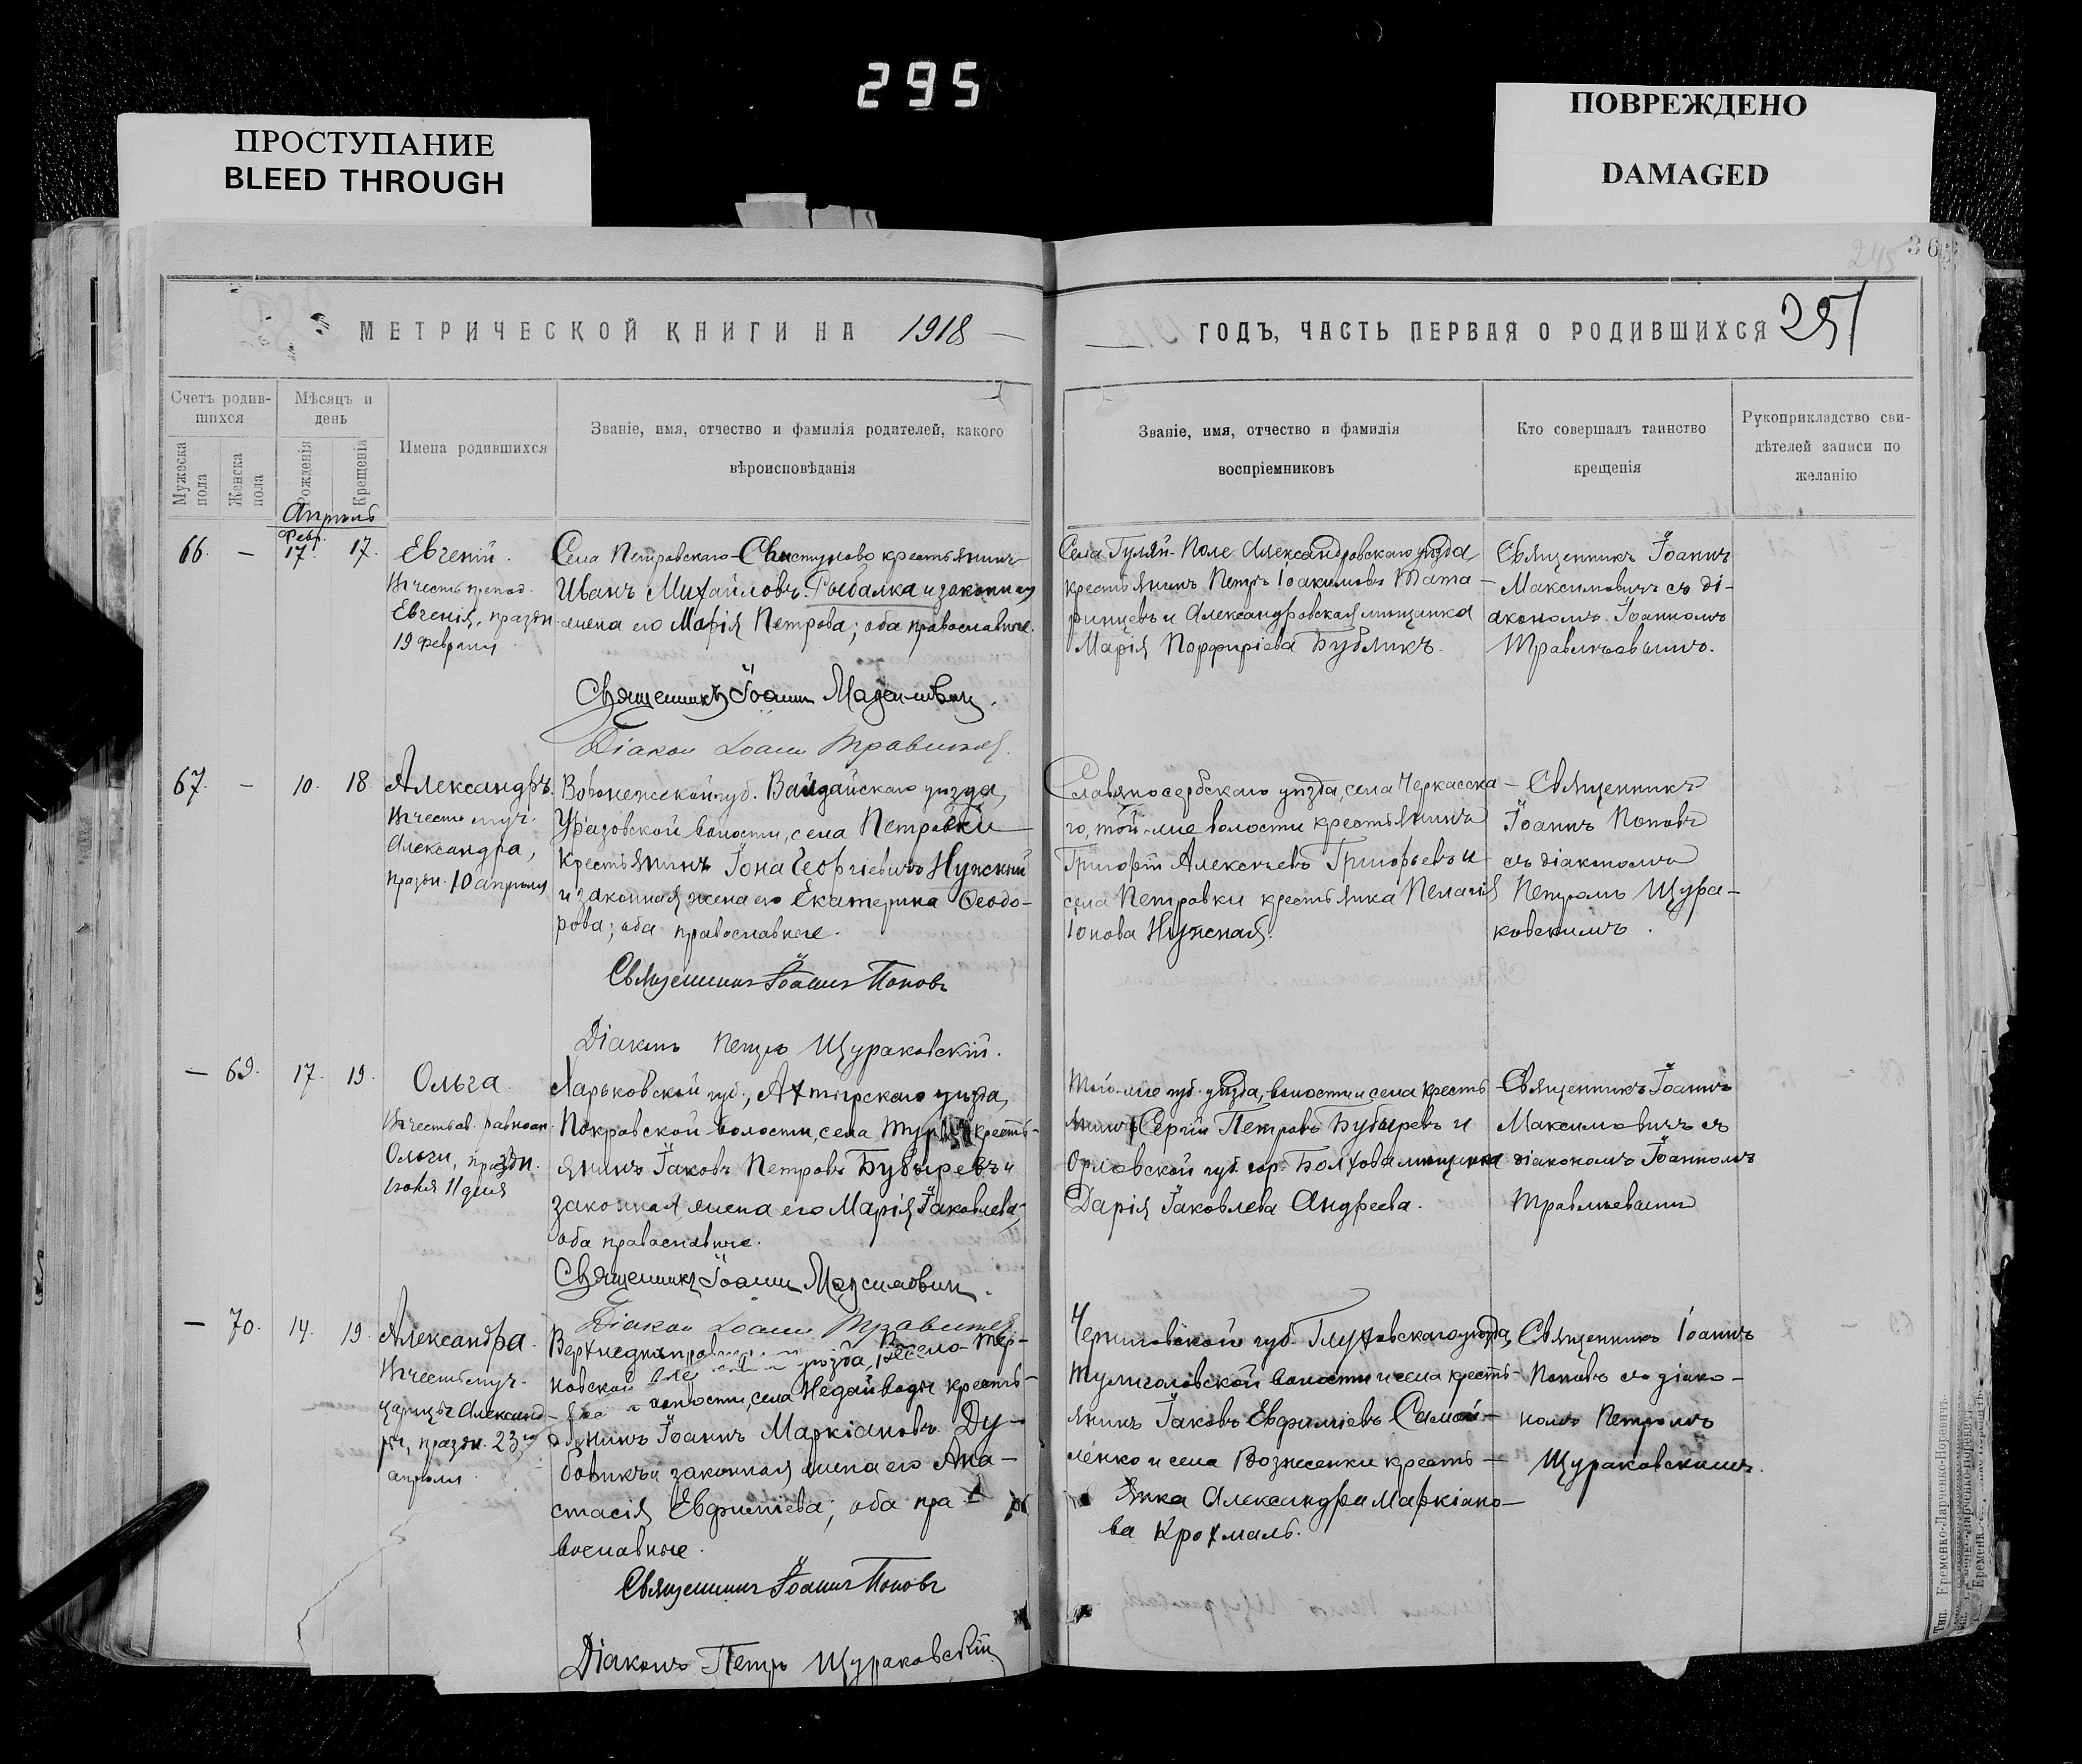 295
ПРОСТУПАНИЕ
BLEED THROUGH
ПОВРЕЖДЕНО
DAMAGED
245
365
МЕТРИЧЕСКОЙ КНИГИ НА 1918
Счетъ родив-
шихся
Мѣсяцъ и
день
Мужеска
пола
Женска
пола
Рожденія
Крещенія
Имена родившихся
Званіе, имя, отчество и фамилія родителей, какого
вѣроисповѣданія
Апрѣль
Февр.
66. — 17. 17.
Евгеній.
Въ честь препод.
Евгенія, праздн.
19 февраля
Села Петровскаго-Свистуново крестьянинъ
Иванъ Михайловъ Рыбалка и законная
жена его Марія Петрова; оба православные.
Священникъ Іоаннъ Максимовичъ.
Діаконъ Іоаннъ
67. — 10. 18.
Александръ.
Въ честь муч.
Александра,
праздн. 10 апрѣля
Воронежской губ. Валуйскаго уѣзда,
Уразовской волости, села Петровки
крестьянинъ Іона Георгіевичъ Нужный
и законная жена его Екатерина Ѳеодо-
рова; оба православные.
Священникъ Іоаннъ Поповъ
Діаконъ Петръ Щураковскій.
— 69. 17. 19.
Ольга.
Въ честь св. равноап.
Ольги, праздн.
іюля 11 дня
Харьковской губ., Ахтырскаго уѣзда,
Покровской волости, села кресть-
янинъ Іаковъ Петровъ Бубыревъ и
законная жена его Марія Іаковлева;
оба православные.
Священникъ Іоаннъ Максимовичъ.
Діаконъ Іоаннъ
— 70. 14. 19.
Александра.
Въ честь муч.
царицы Александ-
ры, праздн. 23го
апрѣля.
уѣзда, Весело-Тер-
новской волости, села Недайводы кресть-
янинъ Іоаннъ Маркіановъ Ду-
бовикъ и законная жена его Ана-
стасія Евфиміева; оба пра-
вославные.
Священникъ Іоаннъ Поповъ
Діаконъ Петръ Щураковскій
ГОДЪ, ЧАСТЬ ПЕРВАЯ О РОДИВШИХСЯ 251
Званіе, имя, отчество и фамилія
воспріемниковъ
Кто совершалъ таинство
крещенія
Рукоприкладство сви-
дѣтелей записи по
желанію
Села Гуляй-Поле Александровскаго уѣзда,
крестьянинъ Петръ Іоакимовъ Тата-
ринцевъ и Александровская мѣщанка
Марія Порфиріева Бубликъ.
Священникъ Іоаннъ
Максимовичъ съ ді-
акономъ Іоанномъ
Славяносербскаго уѣзда, села Черкасска-
го, той-же волости крестьянинъ
Григорій Алексѣевъ Григорьевъ и
села Петровки крестьянка Пелагія
Іонова Нужная.
Священникъ
Іоаннъ Поповъ
съ діакономъ
Петромъ Щура-
ковскимъ.
Той-же губ. уѣзда, волости и села кресть-
янинъ Сергій Петровъ Бубыревъ и
Орловской губ. гор. Болхова мѣщанка
Дарія Іаковлева Андреева.
Священникъ Іоаннъ
Максимовичъ съ
діакономъ Іоанномъ
Черниговской губ. Глуховскаго уѣзда,
Тулиголовской волости и села кресть-
янинъ Іаковъ Евфиміевъ Самой-
ленко и села Вознесенки кресть-
янка Александра Маркіано-
ва Крохмаль.
Священникъ Іоаннъ
Поповъ съ діако-
номъ Петромъ
Щураковскимъ.
Тип. Еременко-Ларченко-Поревичъ.